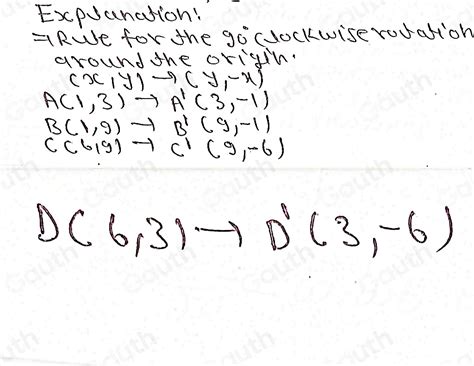 Explanation:
⇒Rule for the 90° clockwise rotation
around the origin.
(x,y)→(y,-x)
A(1,3)→A'(3,-1)
B(1,9)→B'(9,-1)
C(6,9)→C'(9,-6)
D(6,3)→D'(3,-6)